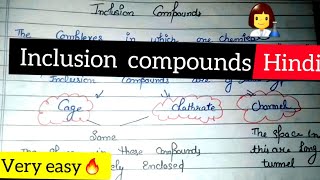 Inclusion Compounds
The Complexes in which one chemical
Inclusion compounds Hindi
Inclusion Compounds are of
Cage Clathrate Channel
Same
The space in these Compounds
Enclosed
The space in
this are long
tunnel
Very easy🔥